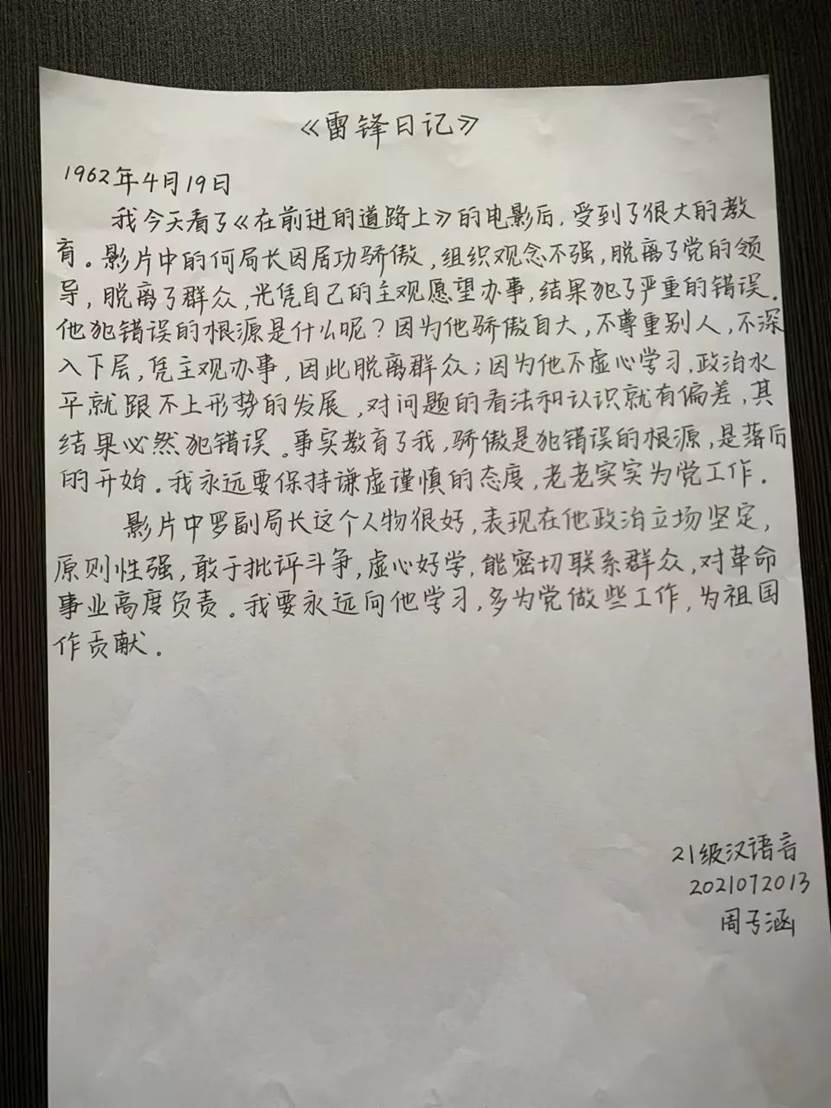 《雷锋日记》
1962年4月19日
我今天看了《在前进的道路上》的电影后,受到了很大的教
育。影片中的何局长因居功骄傲,组织观念不强,脱离了党的领
导,脱离了群众,光凭自己的主观愿望办事,结果犯了严重的错误。
他犯错误的根源是什么呢?因为他骄傲自大,不尊重别人,不深
入下层,凭主观办事,因此脱离群众;因为他不虚心学习,政治水
平就跟不上形势的发展,对问题的看法和认识就有偏差,其
结果必然犯错误。事实教育了我,骄傲是犯错误的根源,是落后
的开始。我永远要保持谦虚谨慎的态度,老老实实为党工作。
影片中罗副局长这个人物很好,表现在他政治立场坚定,
原则性强,敢于批评斗争,虚心好学,能密切联系群众,对革命
事业高度负责。我要永远向他学习,多为党做些工作,为祖国
作贡献。
21级汉语言
2021072013
周子涵